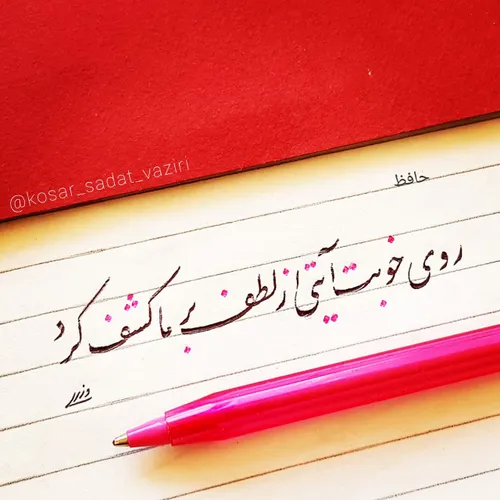 @kosar_sadat_vaziri
حافظ
روی خوبت آیتی از لطف بر ما کشف کرد
وزیری